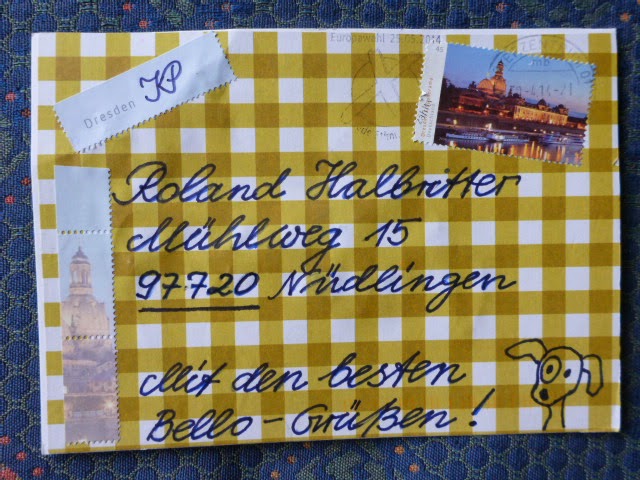 Europawahl 25.05.2014
Dresden
KP
Roland Halbritter
Mühlweg 15
97720 Nüdlingen
Mit den besten
Bello-Grüßen!